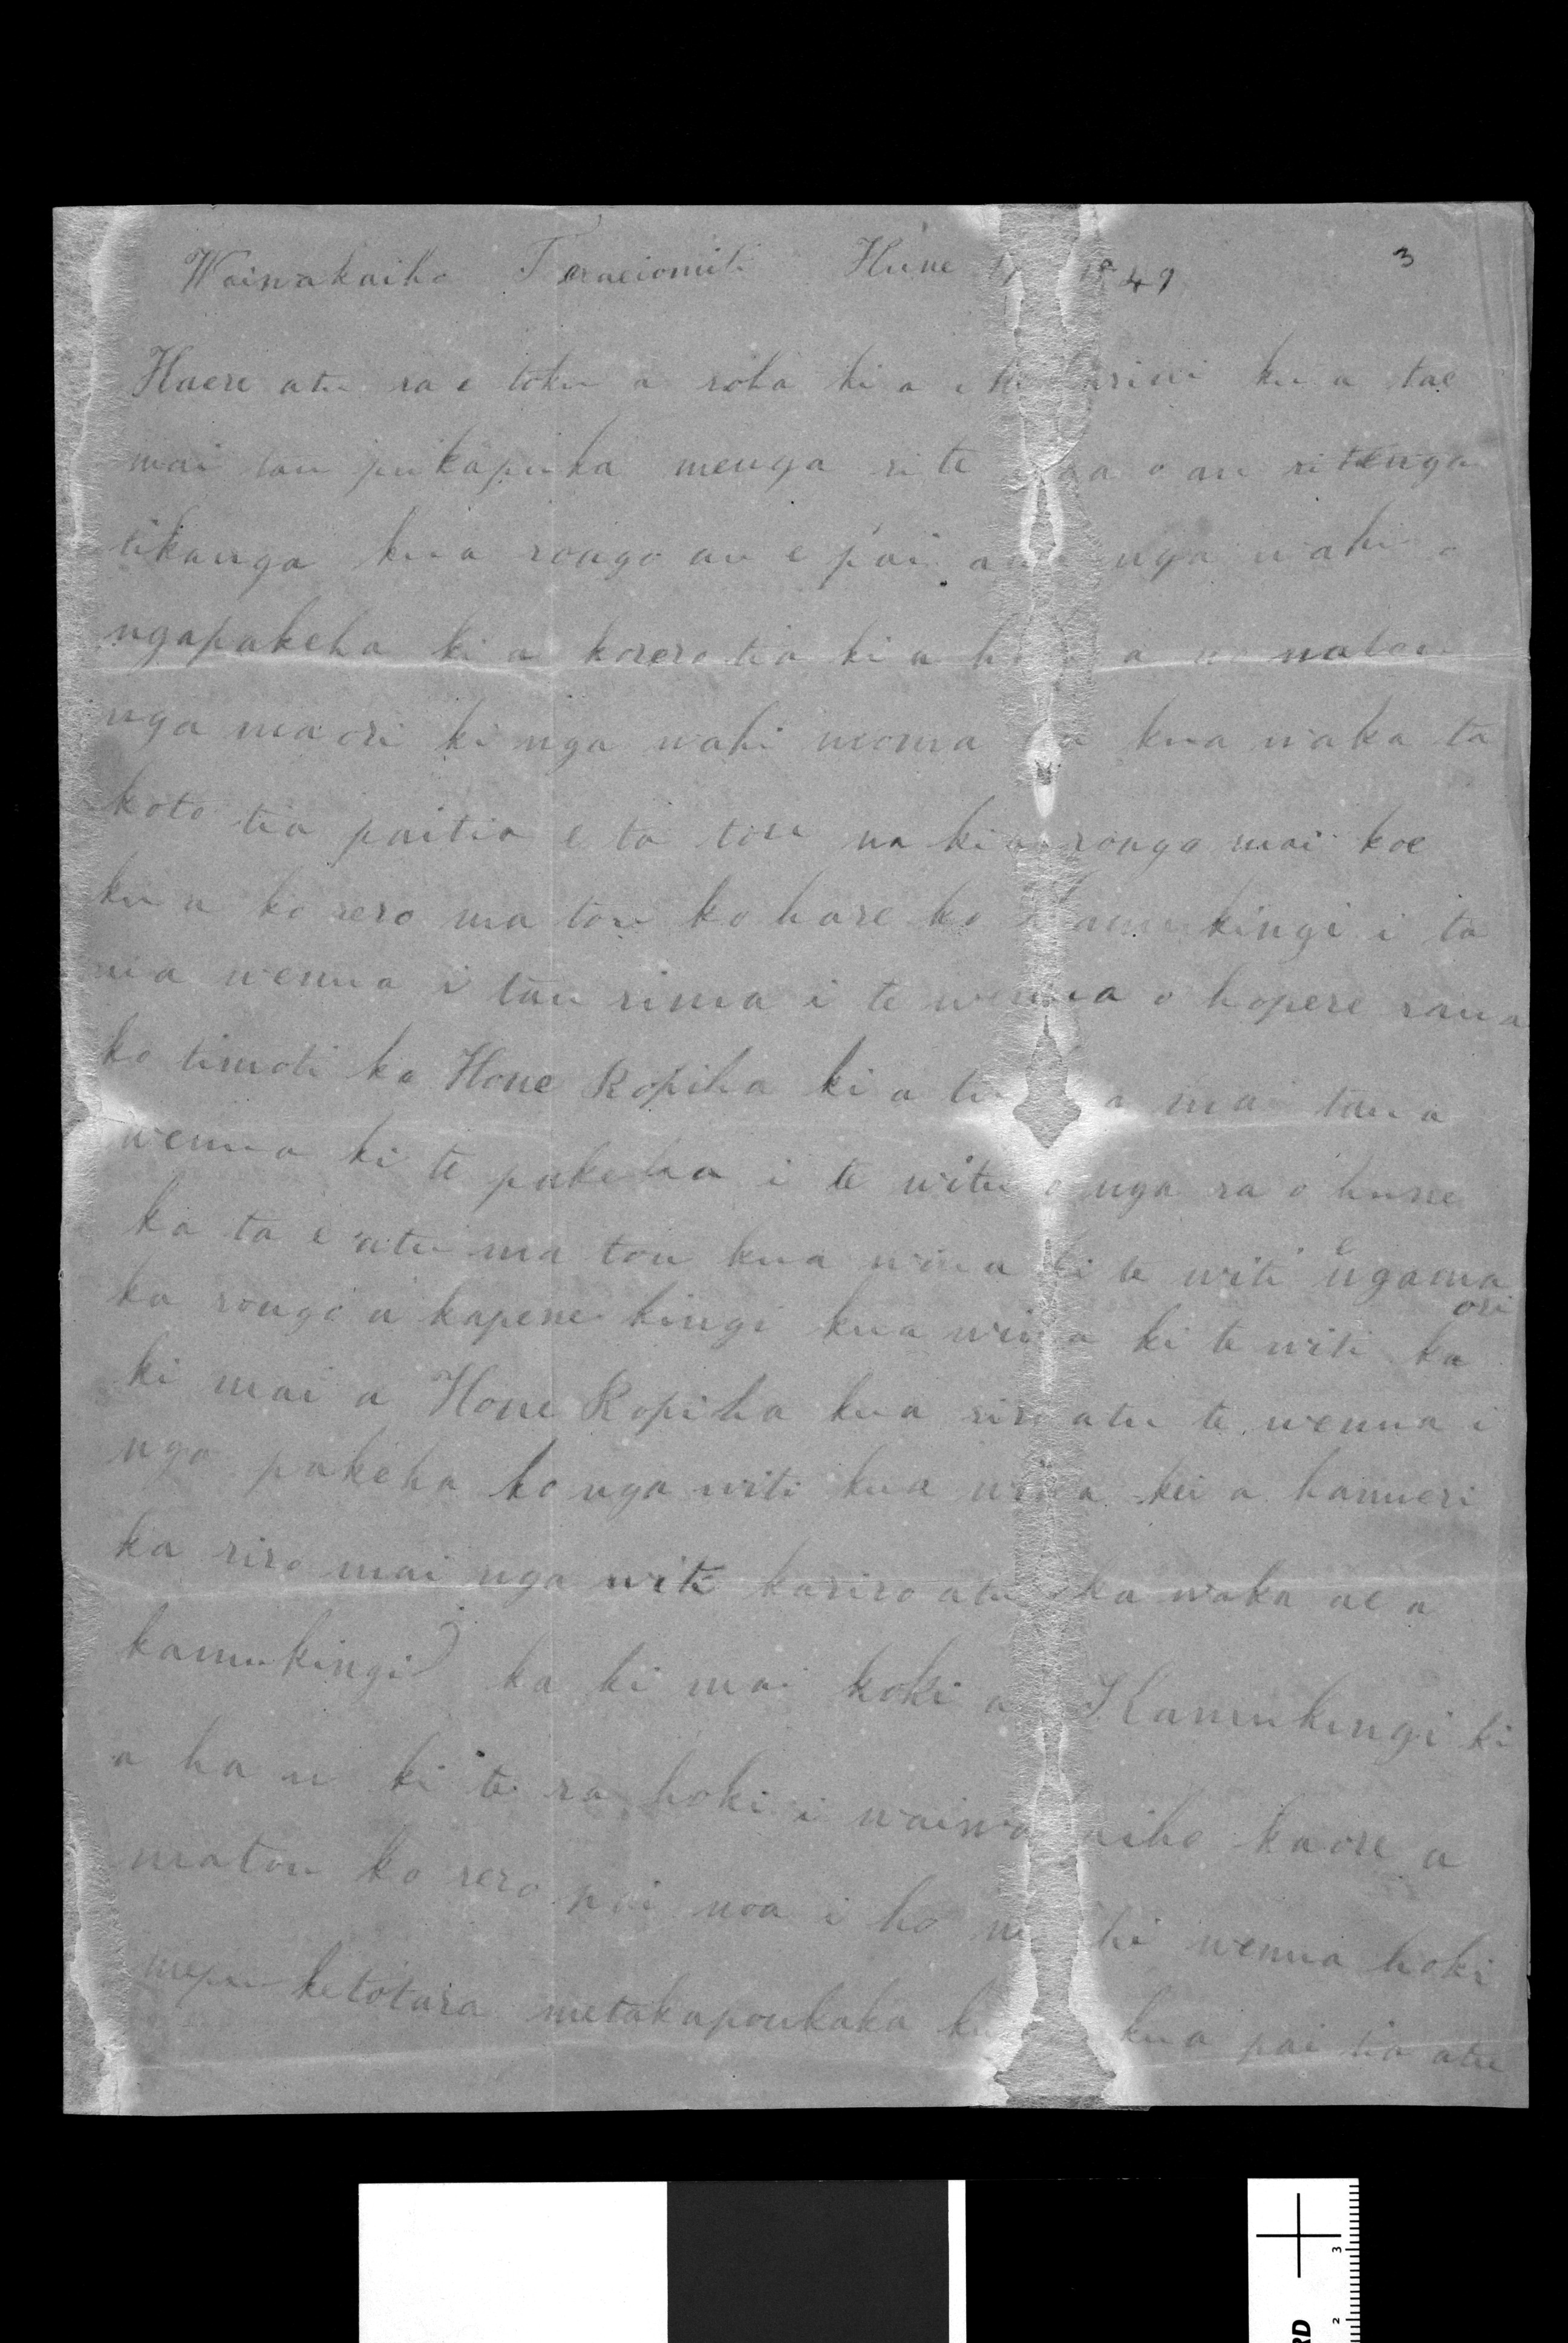 Waiwakaiho Teraeiomiti Hune 1849 3
Haere atu ra e toku a roha ki a kua tae
mai tau pukapuka menga rite o au ritenga
tikanga kua rongo au e pai ana nga wahi o
ngapakeha ki a korero tia ki a matou
nga maori ki nga wahi kua waka ta
koto tia paitia e ta tou na kia rongo mai koe
kua korero ma tou ko hare ko kamukingi i ta
na wenua i tau rima i te wenua o hopere raua
ko timoti ko Hone Ropiha ki a mai tana
wenua ki te pakeha i te witu o nga ra o hune
ka ta e atu ma tou kua wiua ki te witi e ngama
ori
ka rongo a kapene kingi kua wiua ki te witi ka
ki mai a Hone Ropiha kua riro atu te wenua i
nga pakeha ko nga witi kua wiua kei a hamueri
ka riro mai nga witi kariro atu ka waka ae a
kamukingi ka ki mai koki a Kamukingi ki
a ha u ki te ra hoki i waiwakaiho kaore a
matou ko rero pai noa i ho wenua hoki
mepu ketotara metakapoukaka kua pai tia atu